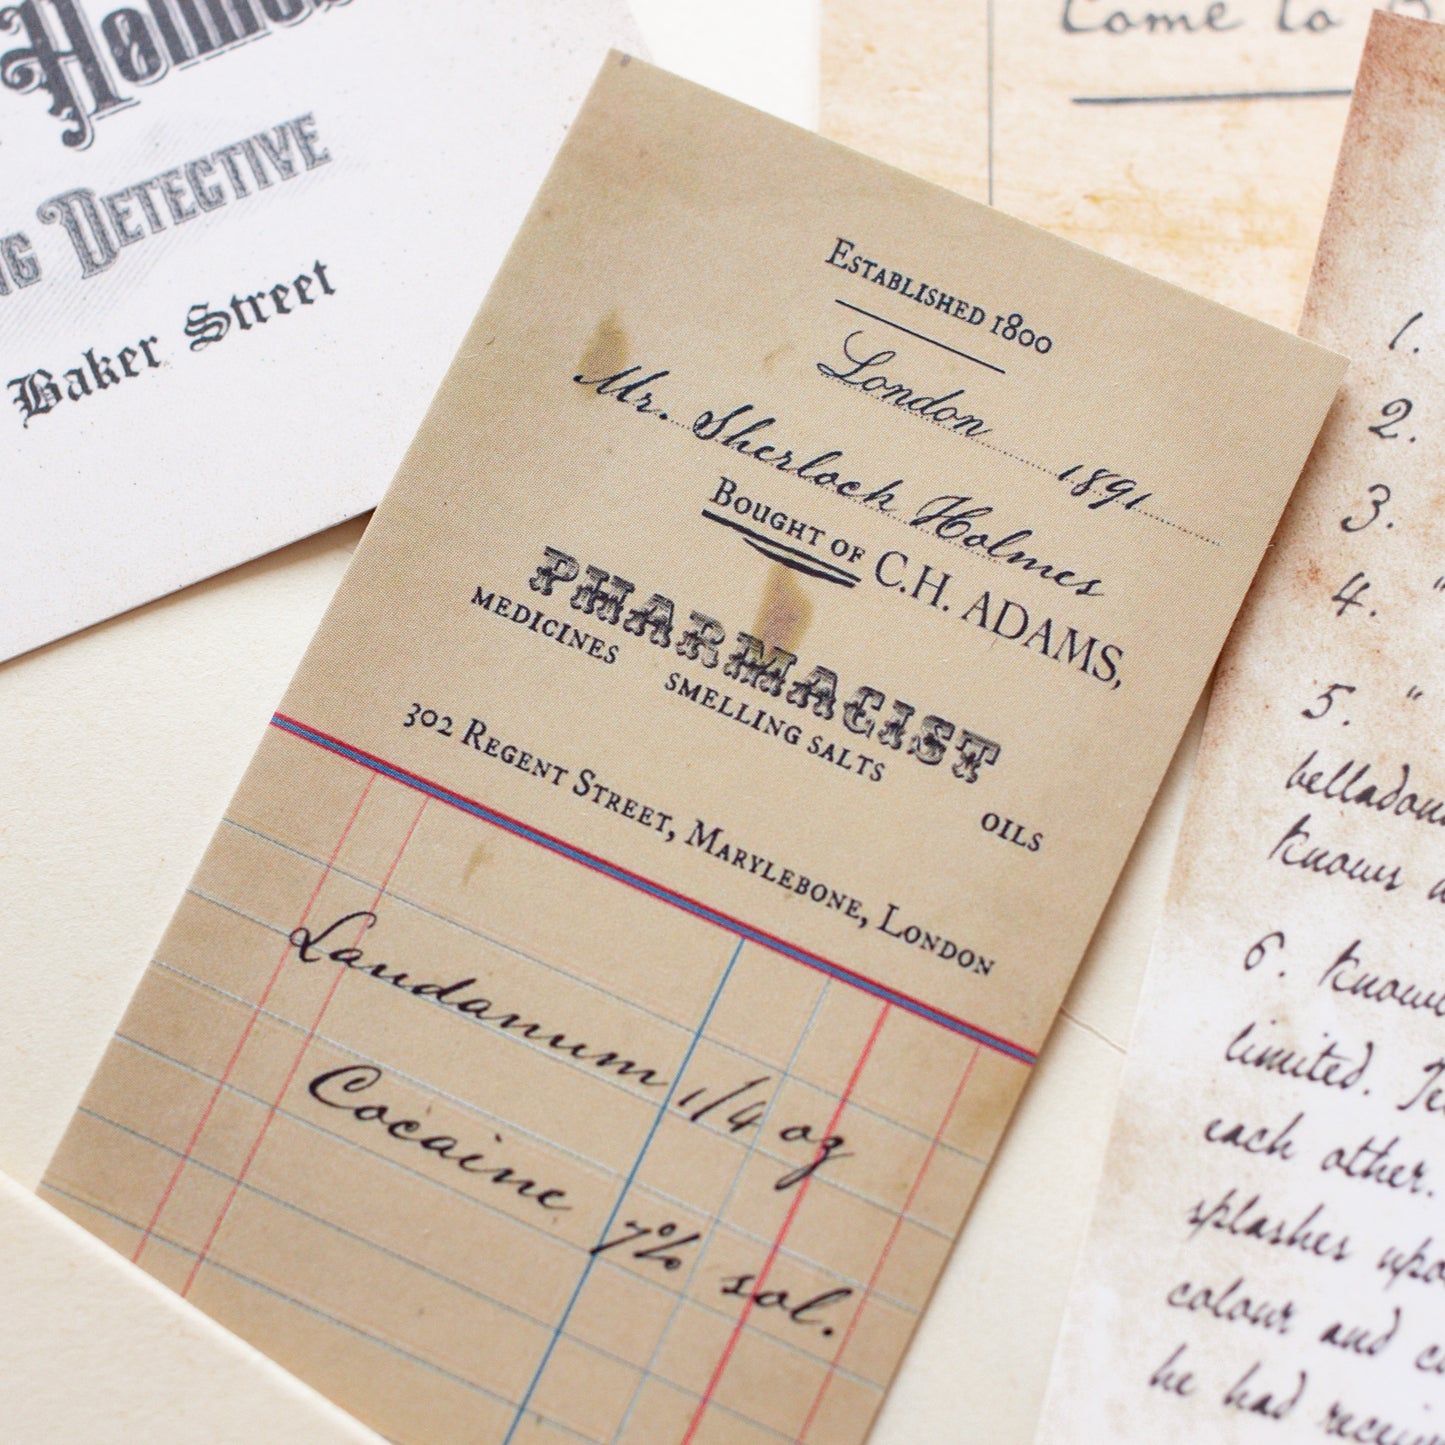 Holmes
Detective
Baker Street
Established 1800
London 1891
Mr. Sherlock Holmes
Bought of C.H. ADAMS,
PHARMACIST
MEDICINES SMELLING SALTS OILS
302 Regent Street, Marylebone, London
Laudanum 1/4 oz
Cocaine 7% sol.
Come to
1.
2.
3.
4. "
5. "
Knows
6.
limited.
each other.
splashes
colour and
he had